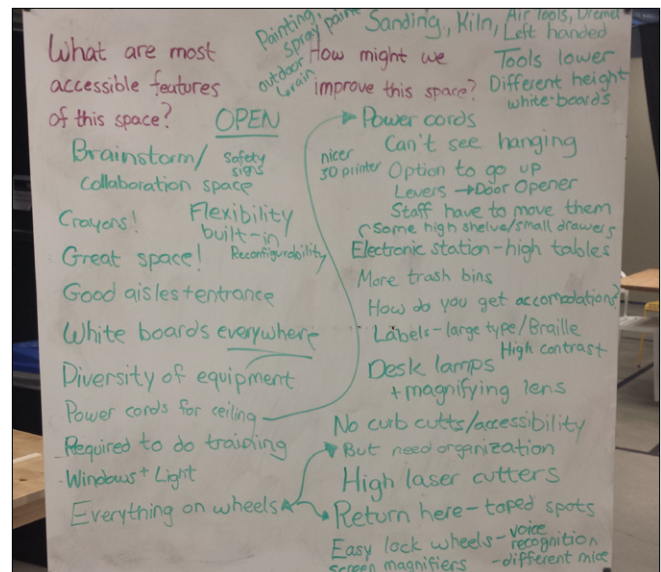 What are most
accessible features
of this space?
OPEN
Brainstorm/
Collaboration space
Safety
signs
Crayons!
Flexibility
built-in
Reconfigurability
Great space!
Good aisles + entrance
White boards everywhere
Diversity of equipment
Power cords for ceiling
Required to do training
Windows + Light
Everything on wheels
Painting,
spray paint
outdoor
Sanding, Kiln,
Air tools, Dremel
Left handed
How might we
improve this space?
Tools lower
Different height
white-boards
Power cords
Can't see hanging
nicer
3D printer
Option to go up
Levers → Door Opener
Staff have to move them
Some high shelve/small drawers
Electronic station - high tables
More trash bins
How do you get accomodations?
Labels - large type/Braille
High contrast
Desk lamps
+ magnifying lens
No curb cutts/accessibility
But need organization
High laser cutters
Return here - taped spots
Easy lock wheels
- voice
recognition
screen magnifiers
- different mice